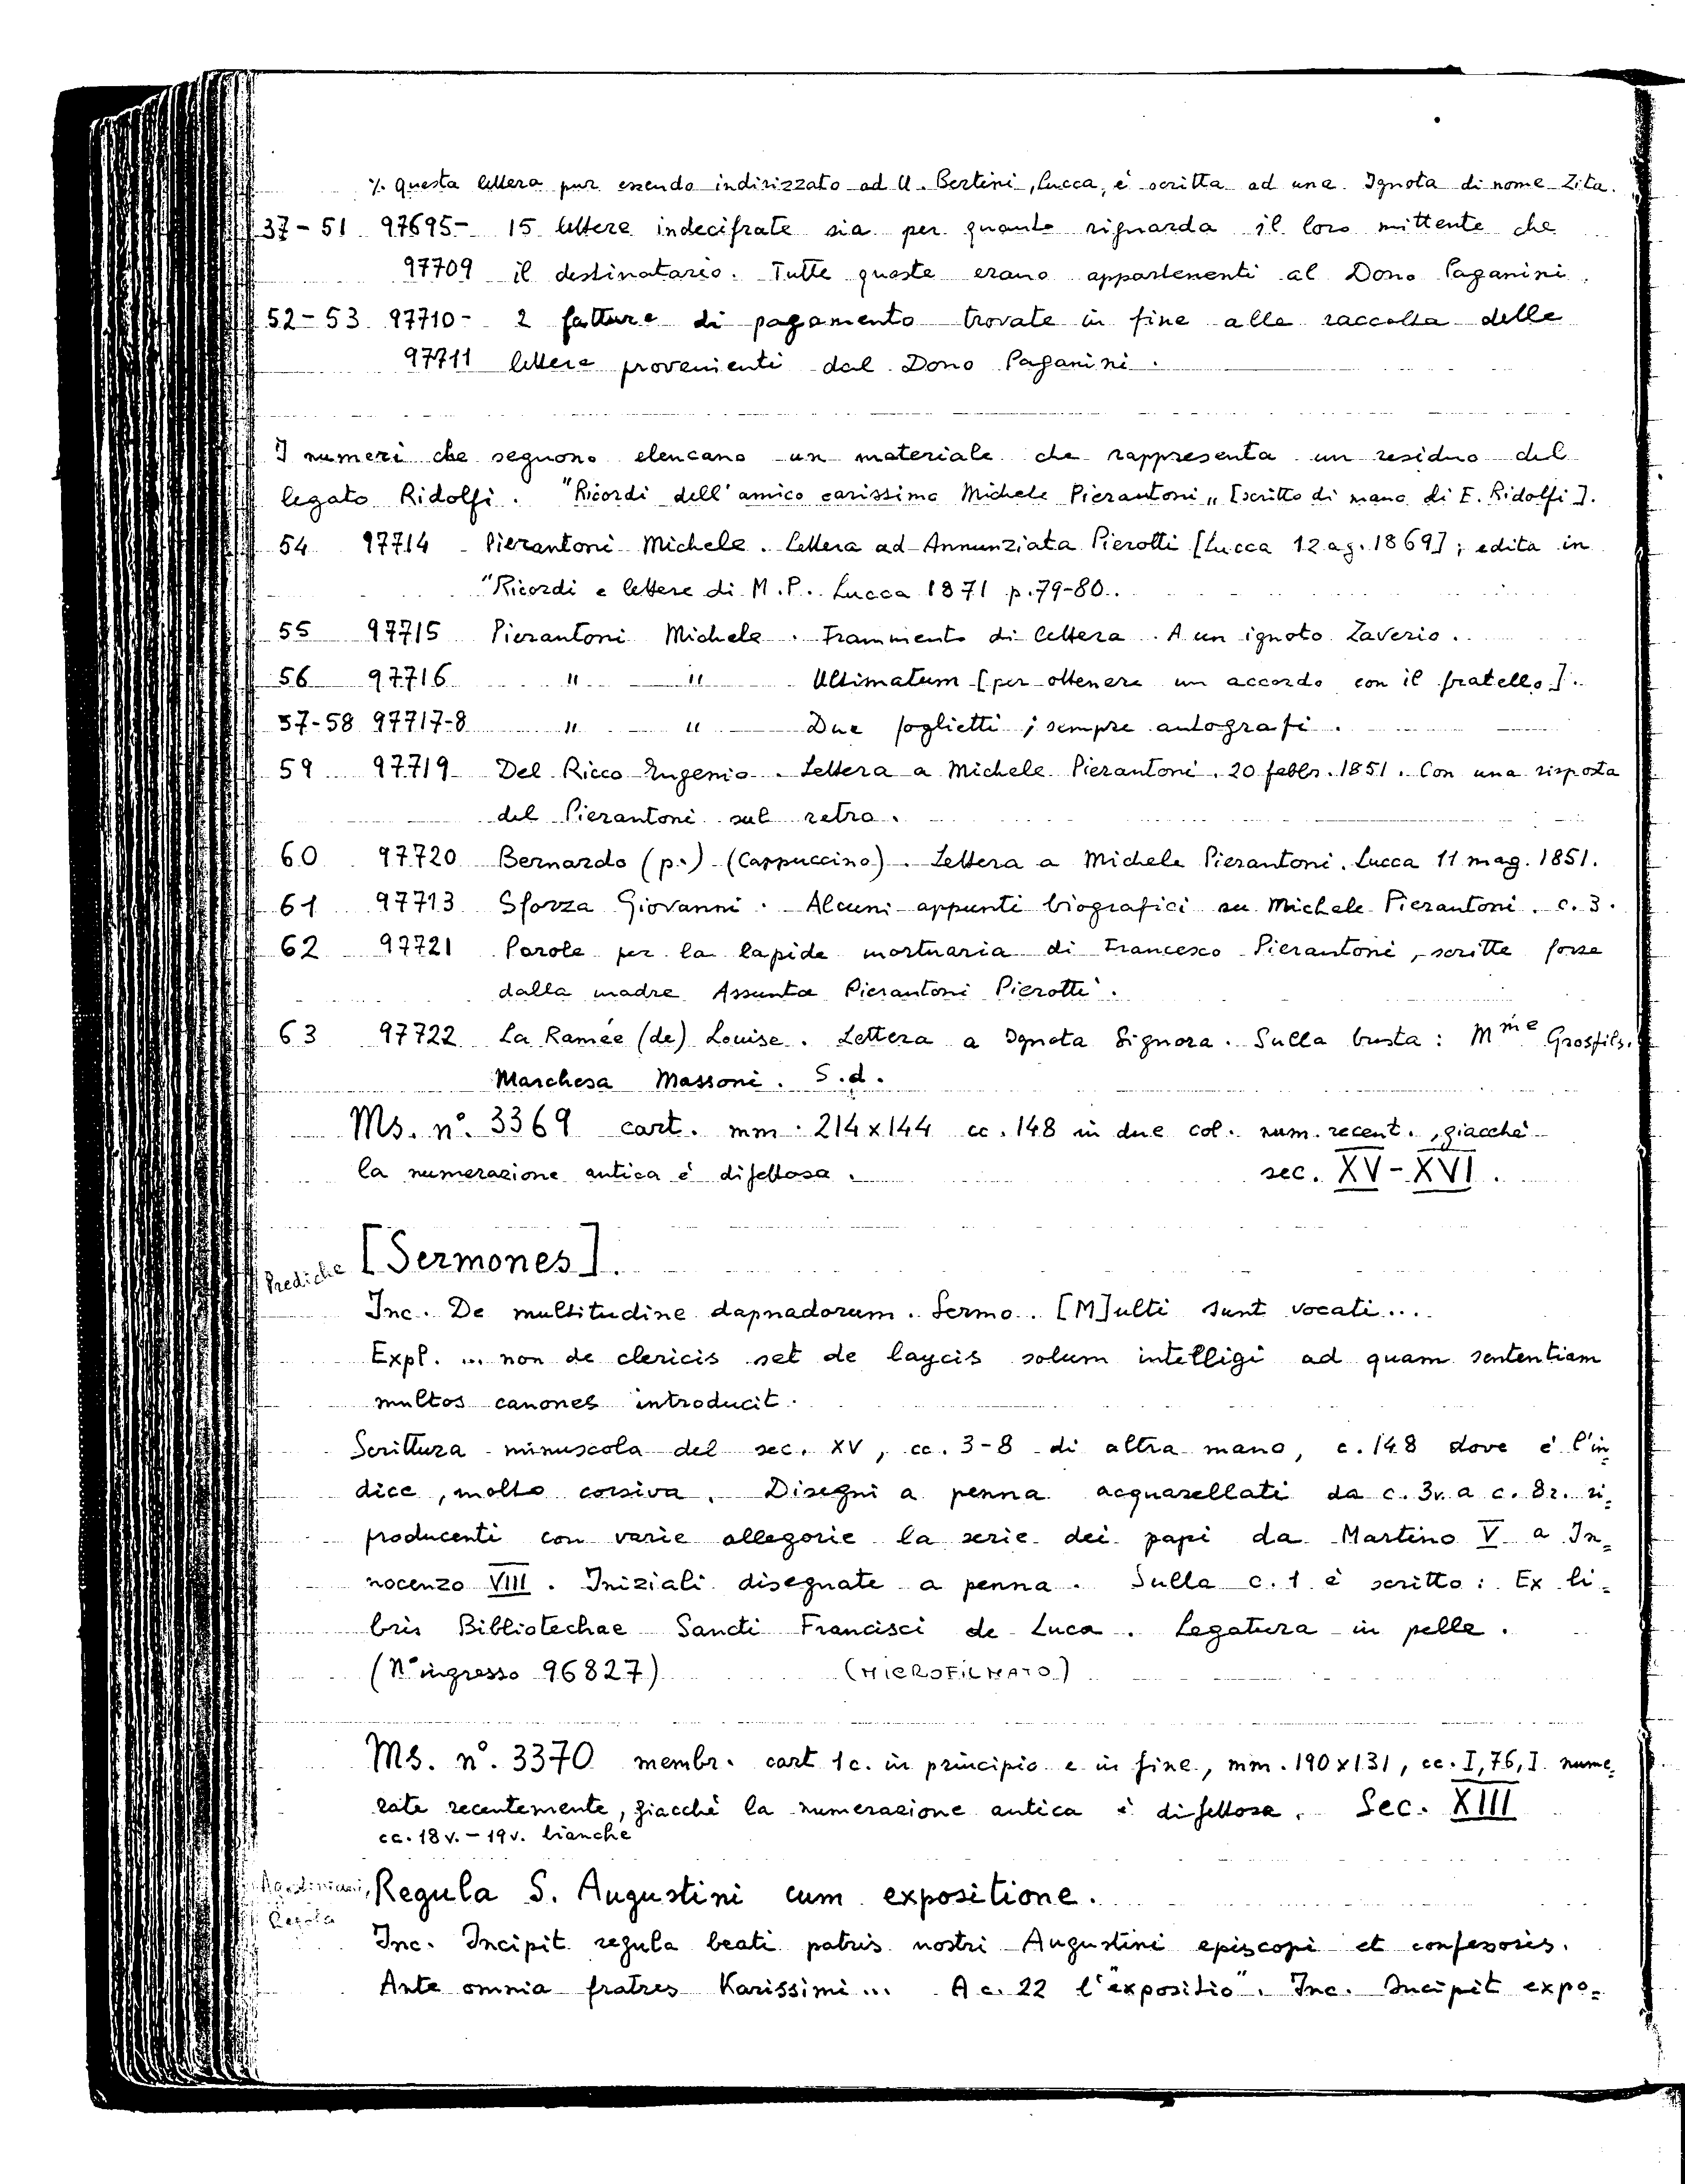 ·/. questa lettera pur essendo indirizzato ad U. Bertini, Lucca, è scritta ad una Ignota di nome Zita.
37-51 97695- 15 lettere indecifrate sia per quanto riguarda il loro mittente che
97709 il destinatario. Tutte queste erano appartenenti al Dono Paganini.
52-53 97710- 2 fatture di pagamento trovate in fine alla raccolta delle
97711 lettere provenienti dal Dono Paganini.
I numeri che seguono elencano un materiale che rappresenta un residuo del
legato Ridolfi. "Ricordi dell'amico carissimo Michele Pierantoni" [scritto di mano di E. Ridolfi].
54 97714 Pierantoni Michele. Lettera ad Annunziata Pierotti [Lucca 12 ag. 1869]; edita in
"Ricordi e lettere di M.P. Lucca 1871 p. 79-80.
55 97715 Pierantoni Michele. Frammento di lettera. A un ignoto Zaverio.
56 97716 " " Ultimatum [per ottenere un accordo con il fratello].
57-58 97717-8 " " Due foglietti; sempre autografi.
59 97719 Del Ricco Eugenio. Lettera a Michele Pierantoni. 20 febbr. 1851. Con una risposta
del Pierantoni sul retro.
60 97720 Bernardo (p.) (Cappuccino). Lettera a Michele Pierantoni. Lucca 11 mag. 1851.
61 97713 Sforza Giovanni. Alcuni appunti biografici su Michele Pierantoni. c. 3.
62 97721 Parole per la lapide mortuaria di Francesco Pierantoni, scritte forse
dalla madre Assunta Pierantoni Pierotti.
63 97722 La Ramée (de) Louise. Lettera a Ignota Signora. Sulla busta: Mme Grosfils.
Marchesa Massoni. S.d.
Ms. n°. 3369 cart. mm. 214x144 cc. 148 in due col. num. recent., giacchè
la numerazione antica è difettosa. sec. XV-XVI.
Prediche [Sermones].
Inc. De multitudine dapnadorum. Sermo. [M]ulti sunt vocati....
Expl. ... non de clericis set de laycis solum intelligi ad quam sententiam
multos canones introducit.
Scrittura minuscola del sec. XV, cc. 3-8 di altra mano, c. 148 dove è l'in=
dice, molto corsiva. Disegni a penna acquarellati da c. 3v. a c. 8r. ri=
producenti con varie allegorie la serie dei papi da Martino V a In=
nocenzo VIII. Iniziali disegnate a penna. Sulla c. 1 è scritto: Ex li=
bris Bibliotechae Sancti Francisci de Luca. Legatura in pelle.
(N° ingresso 96827) (MICROFILMATO)
Ms. n°. 3370 membr. cart 1c. in principio e in fine, mm. 190x131, cc. I,76,I nume=
rate recentemente, giacchè la numerazione antica è difettosa. Sec. XIII
cc. 18v. - 19v. bianche
Agostiniani, Regula S. Augustini cum expositione.
Regola
Inc. Incipit regula beati patris nostri Augustini episcopi et confessoris.
Ante omnia fratres Karissimi... A c. 22 l'"expositio". Inc. Incipit expo=